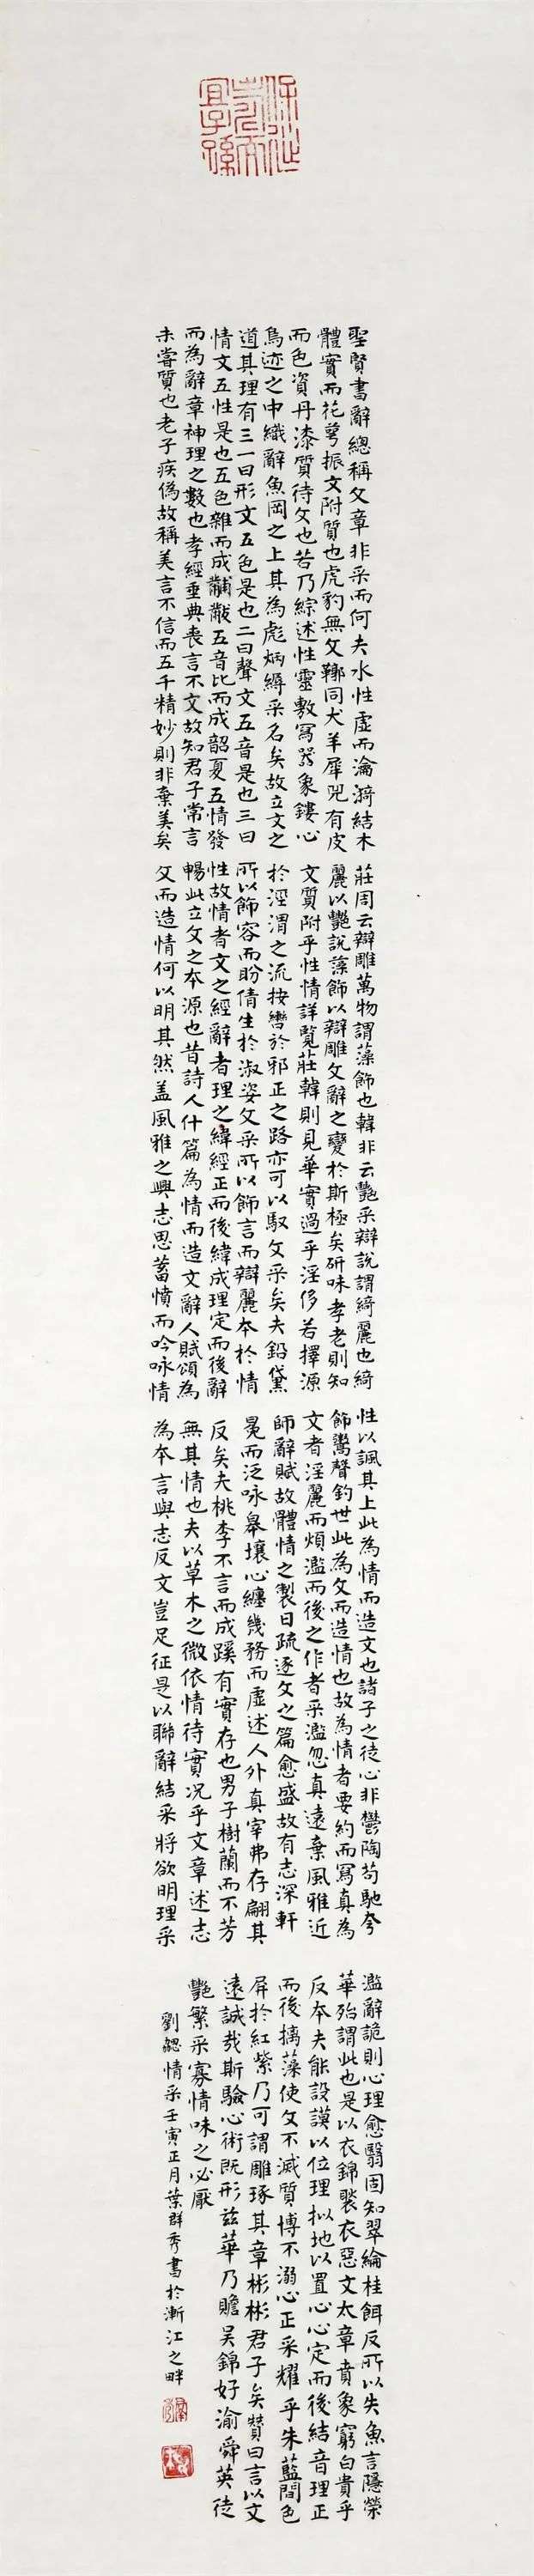 聖賢書辭總稱文章非采而何夫水性虛而淪漪結木
體實而花萼振文附質也虎豹無文鞹同犬羊犀兕有皮
而色資丹漆質待文也若乃綜述性靈敷寫器象鏤心
鳥迹之中織辭魚罔之上其為彪炳縟采名矣故立文之
道其理有三一曰形文五色是也二曰聲文五音是也三曰
情文五性是也五色雜而成黼黻五音比而成韶夏五情發
而為辭章神理之數也孝經垂典喪言不文故知君子常言
未嘗質也老子疾偽故稱美言不信而五千精妙則非棄美矣
莊周云辯雕萬物謂藻飾也韓非云艷采辯說謂綺麗也綺
麗以艷說藻飾以辯雕文辭之變於斯極矣研味孝老則知
文質附乎性情詳覽莊韓則見華實過乎淫侈若擇源
於涇渭之流按轡於邪正之路亦可以馭文采矣夫鉛黛
所以飾容而盼倩生於淑姿文采所以飾言而辯麗本於情
性故情者文之經辭者理之緯經正而後緯成理定而後辭
暢此立文之本源也昔詩人什篇為情而造文辭人賦頌為
文而造情何以明其然盖風雅之興志思蓄憤而吟咏情
性以諷其上此為情而造文也諸子之徒心非鬱陶苟馳夸
飾鬻聲釣世此為文而造情也故為情者要約而寫真為
文者淫麗而煩濫而後之作者采濫忽真遠棄風雅近
師辭賦故體情之製日疏逐文之篇愈盛故有志深軒
冕而泛咏皋壤心纏幾務而虛述人外真宰弗存翩其
反矣夫桃李不言而成蹊有實存也男子樹蘭而不芳
無其情也夫以草木之微依情待實況乎文章述志
為本言與志反文豈足征是以聯辭結采將欲明理采
濫辭詭則心理愈翳固知翠綸桂餌反所以失魚言隱榮
華殆謂此也是以衣錦褧衣惡文太章賁象窮白貴乎
反本夫能設謨以位理拟地以置心心定而後結音理正
而後摛藻使文不滅質博不溺心正采耀乎朱藍間色
屏於紅紫乃可謂雕琢其章彬彬君子矣贊曰言以文
遠誠哉斯驗心術既形兹華乃贍吴錦好渝舜英徒
艷繁采寡情味之必厭
劉勰情采壬寅正月葉群秀書於漸江之畔